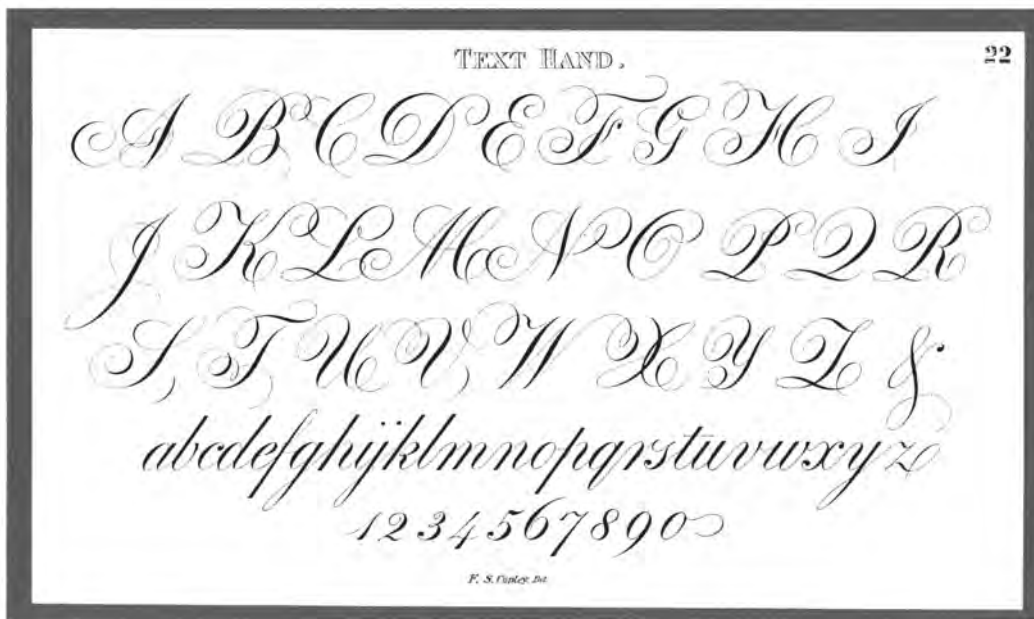 TEXT HAND.
22
A B C D E F G H I
J K L M N O P Q R
S, T U V, W X Y Z &
abcdefghijklmnopqrstuvwxyz
1234567890
F. S. Copley. Del.